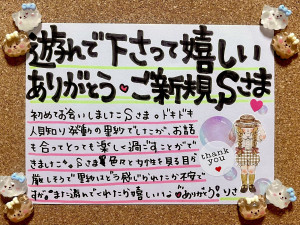 遊んで下さって嬉しい
ありがとう・ご新規Sさま
初めてお会いしましたSさま。ドキドキ
人見知り発動の里紗でしたが、お話
も合ってとっても楽しく過ごすことがで
きました。Sさま色々と女性を見る目が
厳しそうで里紗はどう感じられたか不安で
すが。また遊んでくれたら嬉しいな ありがとう!
thank
you